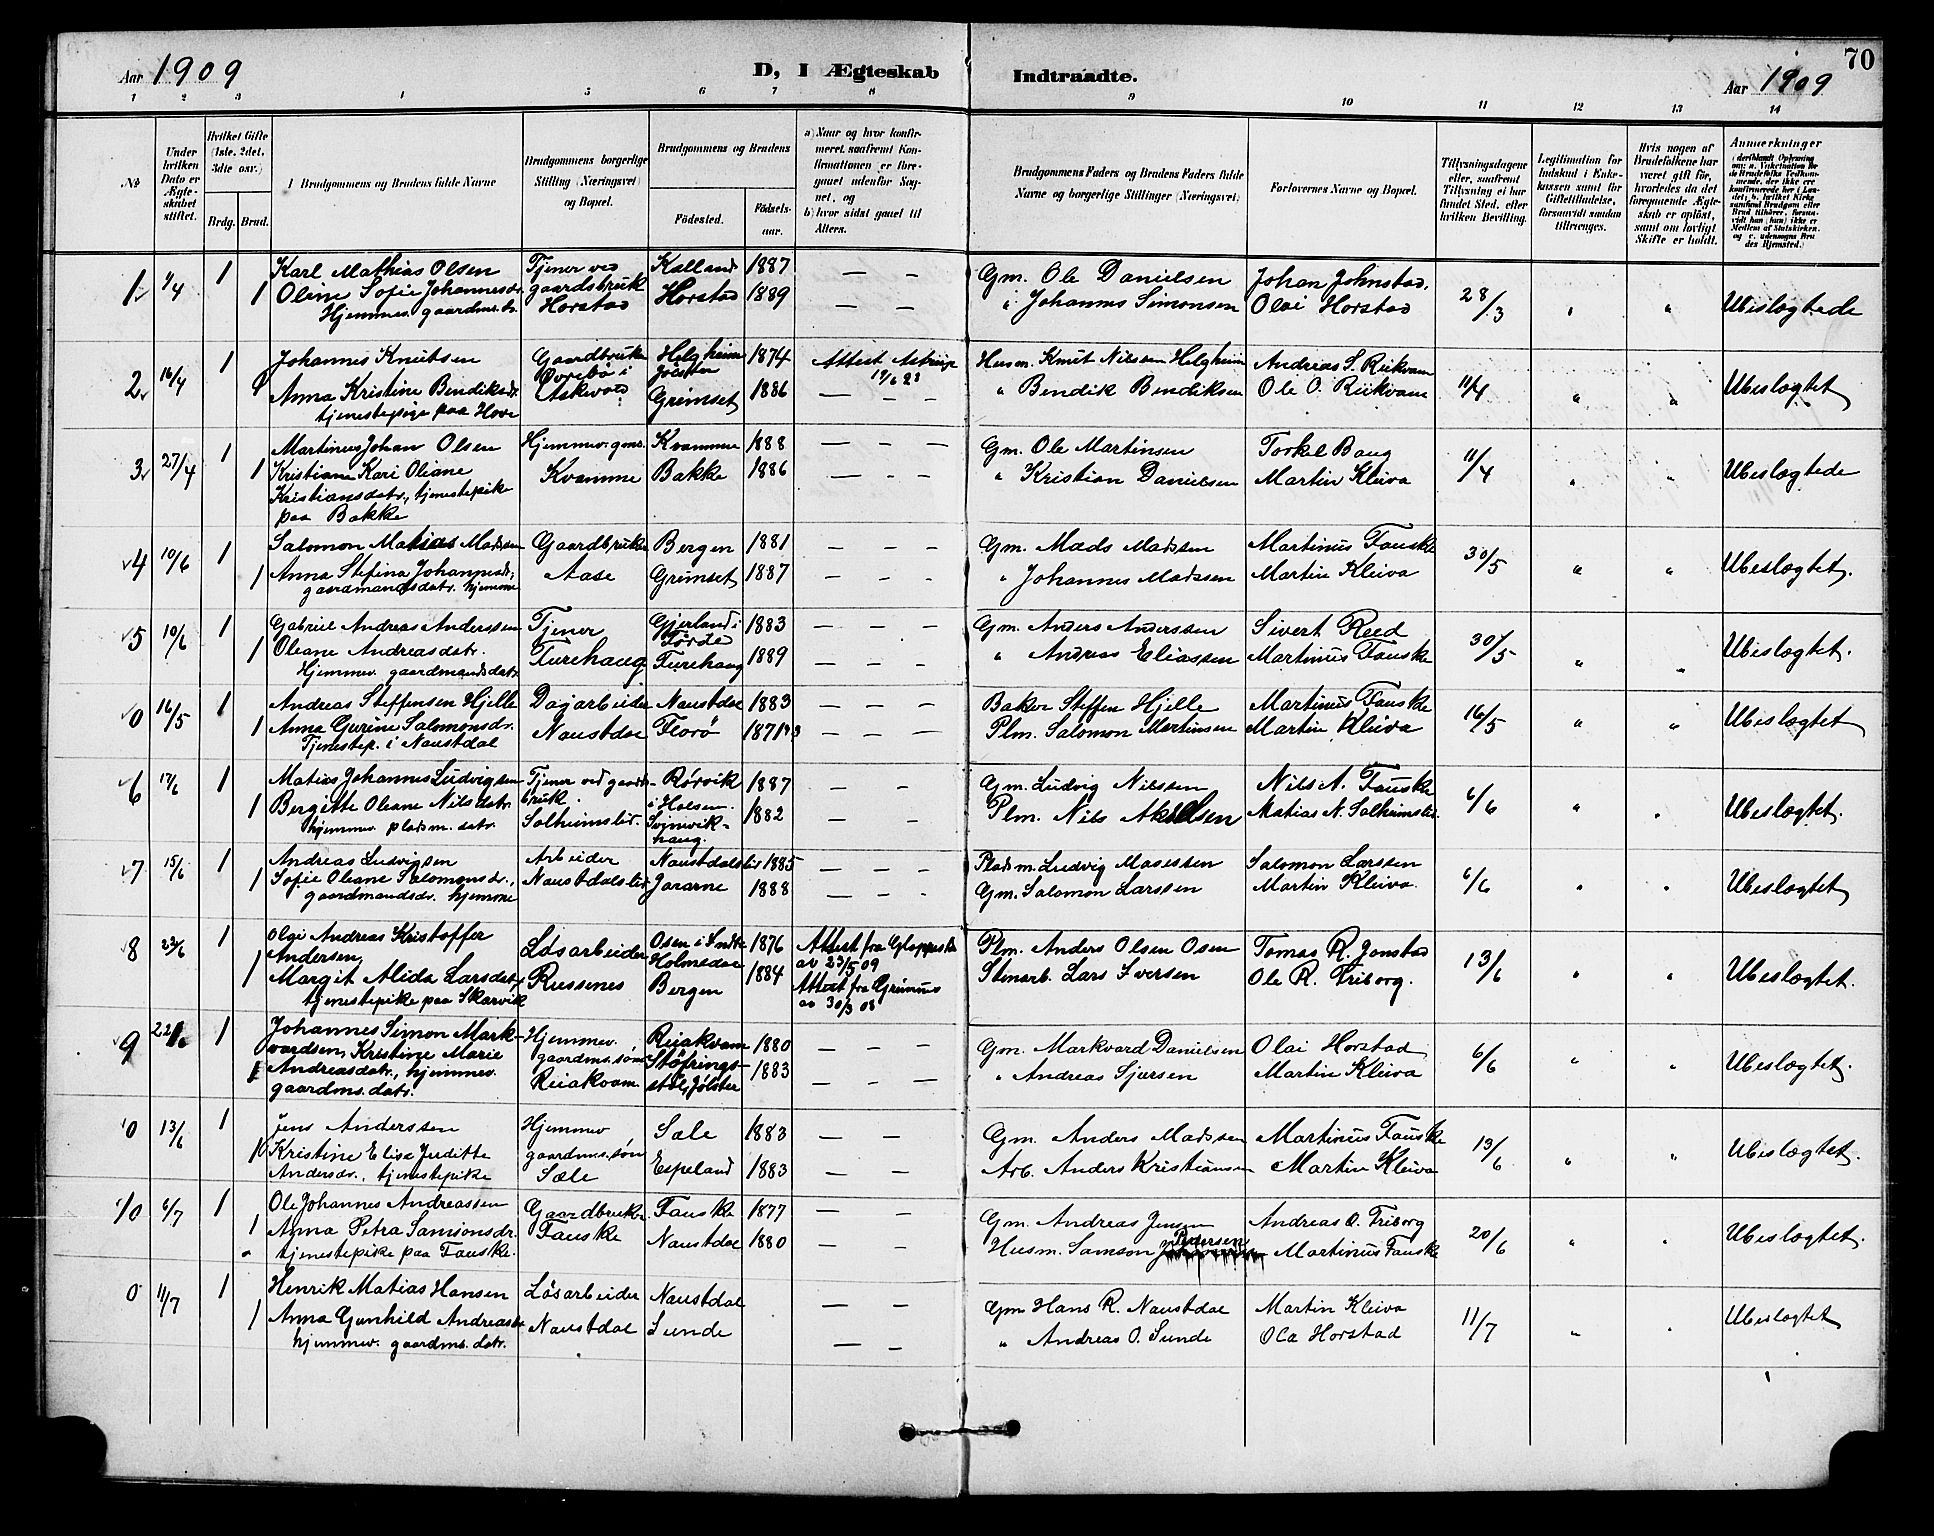 70
Aar 1909
D, I Ægteskab
Indtraadte.
Aar 1909
1 2 3 4 5 6 7 8 9 10 11 12 13 14
No
Under hvilken Dato er Ægteskabet stiftet.
Hvilket Gifte (1ste, 2det, 3die osv.)
Brdg. Brud.
Brudgommens og Brudens fulde Navne
Brudgommens borgerlige Stilling (Næringsvei) og Bopæl.
Brudgommens og Brudens
Fødested.
Fødselsaar.
a) Naar og hvor konfirmeret, saafremt Konfirmationen er foregaaet udenfor Sognet, og
b) hvor sidst gaaet til Alters.
Brudgommens Faders og Brudens Faders fulde Navne og borgerlige Stillinger (Næringsvei)
Forlovernes Navne og Bopæl.
Tillysningsdagene eller, saafremt Tillysning ei har fundet Sted, efter hvilken Bevilling.
Legitimation for Indskud i Enkekassen samt for Giftetilladelse, forsaavidt saadan tiltrænges.
Hvis nogen af Brudefolkene har været gift før, hvorledes da det foregaaende Ægteskab er opløst, samt om lovligt Skifte er holdt.
Anmærkninger
1 4/4 1 Karl Mathias Olsen Tjener ved Kalland 1887 — — Gm. Ole Danielsen Johan Johnstad, 28/3 " " Ubeslægtede
1 Oline Sofie Johannesdr. gaardsbruk Horstad 1889 — — " Johannes Simonsen Olai Horstad
Hjemmev. gaardms.dr. Horstad
2 16/4 1 Johannes Knutsen Gaardbruker Helgheim Jölster 1874 Attest Husm. Knut Nilssen Helgheim Andreas S. Riikvam 11/4 " " Ubeslægtet
1 Anna Kristine Bendiksdr. Övrebö i Askevold Grimset 1886 — - - " Bendik Bendiksen Ole O. Riikvam
tjenestepige paa Hove
3 27/4 1 Martinus Johan Olsen Hjemmev. gms. Kvamme 1888 — — — Gm. Ole Martinsen Torkel Baug 11/4 " " Ubeslægtede
1 Kristiane Kari Oliane Kvamme Bakke 1886 — - — " Kristian Danielsen Martin Kleiva
Kristiansdatr., tjenestepike
paa Bakke
4 10/6 1 Salomon Matias Madssen Gaardbruker Bergen 1881 — — — Gm. Mads Madssen Martinus Fauske 30/5 " " Ubeslægtet.
1 Anna Stefina Johannesdr., Aase Grimset 1887 — - — " Johannes Madssen Martin Kleiva
gaardmandsdatr. hjemme
5 10/6 1 Gabriel Andreas Anderssen Tjener Gjerland i Förde 1883 — — — Gm. Anders Anderssen Sivert Reed 30/5 " " Ubeslægtet.
1 Oleane Andreasdatr. Furehaug Furehaug 1889 — — — " Andreas Eliassen Martinus Fauske
Hjemmev. gaardmandsdatr.
0 16/5 1 Andreas Steffensen Hjelle Dagarbeider Naustdal 1883 — — — Baker Steffen Hjelle Martinus Fauske 16/5 " " Ubeslægtet
1 Anna Gurine Salomonsdr. Naustdal Florö 1871 — — — Plm. Salomon Martinsen Martin Kleiva
Tjenestep. i Naustdal
6 17/6 1 Matias Johannes Ludvigsen Tjener ved gaards- Rörvik 1887 — — Gm. Ludvig Nilssen Nils A. Fauske 6/6 " " Ubeslægtet.
1 Bergitte Oleane Nilsdatr. bruk. i Holsen. 1882 — — Plm. Nils Akselsen Matias N. Solheimslid.
hjemmev. pladsm. datr. Solheimslid. Svinevik-
haug.
7 15/6 1 Andreas Ludvigsen Arbeider Naustdalslid 1885 — — — Pladsm. Ludvig Masessen Salomon Larssen 6/6 " " Ubeslægtet
1 Sofie Oleane Salomonsdr., Naustdalslid Jararne 1888 — - - Gm. Salomon Larssen Martin Kleiva.
gaardmandsdr. hjemme
8 23/6 1 Olai Andreas Kristoffer Lösarbeider Osen i Indre 1876 Attest fra Gloppen Plm. Anders Olsen Osen Tomas R. Jonstad 13/6 " " Ubeslægtet.
Andersen Russenes Holmedal av 23/5 09
1 Margit Alida Larsdatr. Bergen 1884 Attest fra Stenarb. Lars Iversen Ole R. Friborg.
tjenestepike paa Skarvik av 30/3 08
9 1 Johannes Simon Mark- Hjemmev. Riiakvam 1880 — — — Gm. Markvard Danielsen Olai Horstad 6/6 " " Ubeslægtet.
vardsen, Kristine Marie gaardms. søn Stöfrings-
1 Andreasdatr., hjemmev. Riiakvam støl, Jølster 1883 — — — " Andreas Sjursen Martin Kleiva
gaardms. datr.
0 13/6 1 Jens Anderssen Hjemmev Sæle 1883 — — Gm. Anders Madssen Martinus Fauske 13/6 " " Ubeslægtet.
1 Kristine Elise Juditte gaardms. søn Espeland 1883 — — Arb. Anders Kristiansen Martin Kleiva
Andersdr., tjenestepike Sæle
10 6/7 1 Ole Johannes Andreassen Gaardbruker Fauske 1877 — — Gm. Andreas Jensen Andreas O. Friborg 20/6 " " Ubeslægtet.
1 Anna Petra Samsonsdr. Fauske Naustdal 1880 — — Husm. Samson Pedersen Martinus Fauske
tjenestepike paa Fauske.
0 11/7 1 Henrik Matias Hansen Løsarbeider Naustdal — — Gm Hans R. Naustdal Martin Kleiva 11/7 " " Ubeslægtet
1 Anna Gunhild Andreasdr. Naustdal Sunde — — " Andreas O. Sunde Ola Horstad
hjemmev. gaardms. datr.